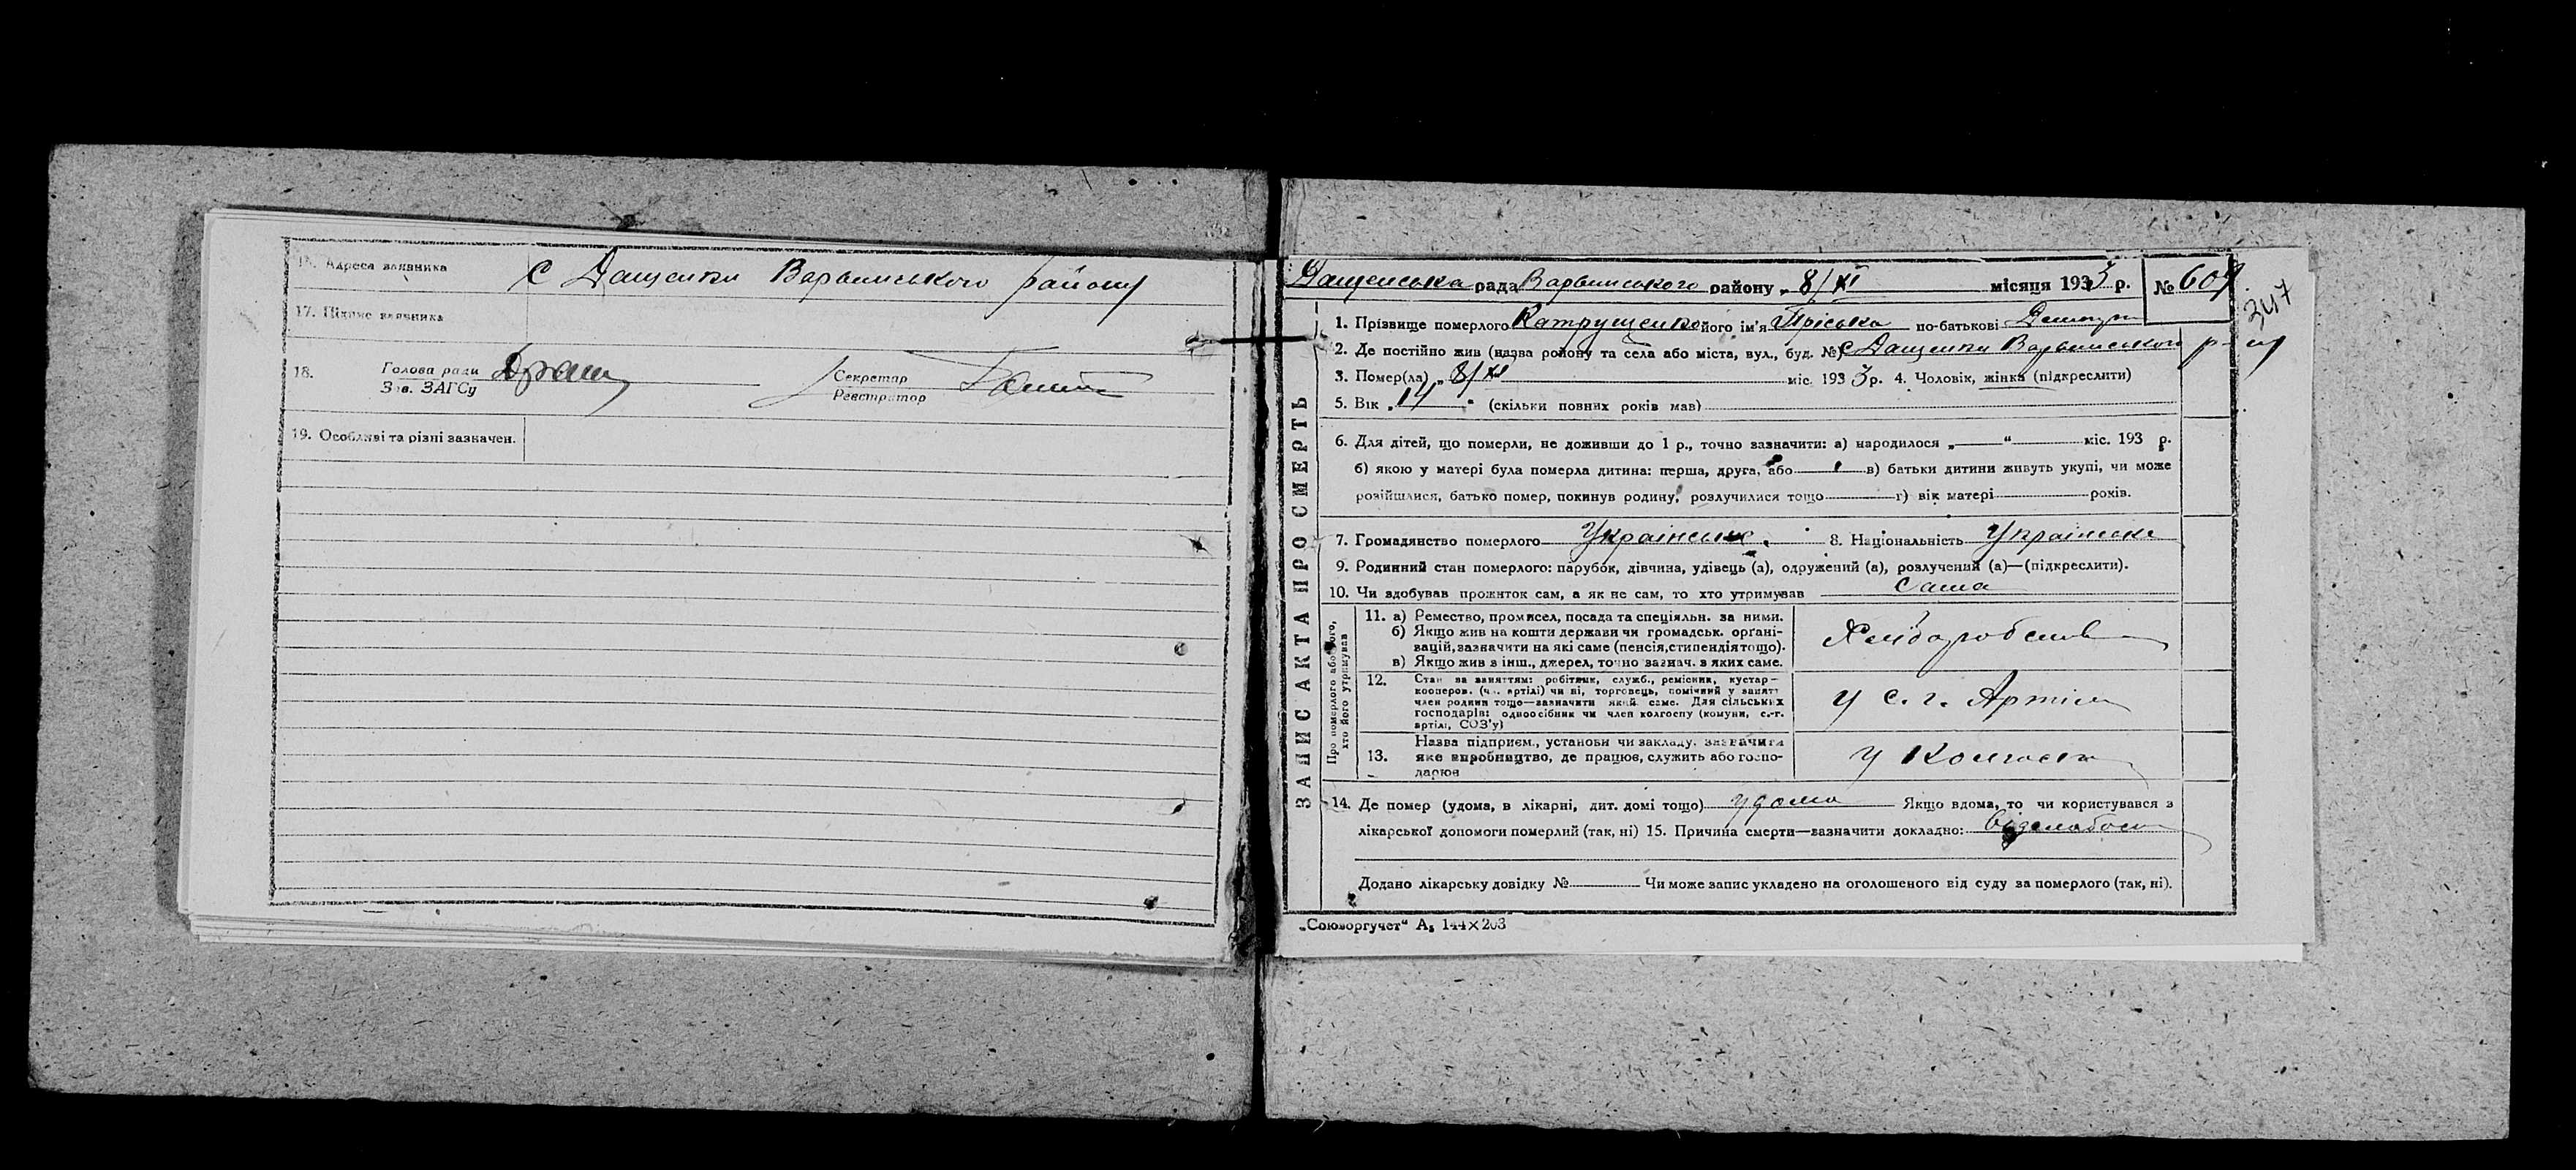 16. Адреса заявника С Дащенки Варвинського району
17. Підпис заявника
18. Голова ради Секретар
Зав. ЗАГСу Реєстратор
19. Особливі та різні зазначен.
Дащенська рада Варвинського району „ 8/XI місяця 1933 р. № 607
347
1. Прізвище померлого Катрущенко його ім'я Пріська по-батькові
2. Де постійно жив (назва району та села або міста, вул., буд. №) с Дащенки Варвинського р-ну
3. Помер(ла) „ 8/XI міс. 193 3 р. 4. Чоловік, жінка (підкреслити)
5. Вік „ 14 “ (скільки повних років мав)
6. Для дітей, що померли, не доживши до 1 р., точно зазначити: а) народилося „ “ міс. 193 р.
б) якою у матері була померла дитина: перша, друга, або в) батьки дитини живуть укупі, чи може
розійшлися, батько помер, покинув родину, розлучилися тощо г) вік матері років.
7. Громадянство померлого Українське 8. Національність Українське
9. Родинний стан померлого: парубок, дівчина, удівець (а), одружений (а), розлучений (а)—(підкреслити).
10. Чи здобував прожиток сам, а як не сам, то хто утримував Сама
ЗАПИС АКТА ПРО СМЕРТЬ
Про померлого або того,
хто його утримував
11. а) Ремество, промисел, посада та спеціяльн. за ними.
б) Якщо жив на кошти держави чи громадськ. орґані-
зацій, зазначити на які саме (пенсія, стипендія тощо).
в) Якщо жив з інш., джерел, точно зазнач. з яких саме.
Хліборобство
12. Стан за заняттям: робітник, служб., ремісник, кустар—
кооперов. (чл. артілі) чи ні, торговець, помічний у занятт
член родини тощо—зазначити який саме. Для сільських
господарів: одноосібник чи член колгоспу (комуни, с.-г.
артілі, СОЗ'у)
у С. г. Артіли
13. Назва підприєм., установи чи закладу, зазначити
яке виробництво, де працює, служить або госпо-
дарює
у Колгоспі
14. Де помер (удома, в лікарні, дит. домі тощо) удома Якщо вдома, то чи користувався з
лікарської допомоги померлий (так, ні) 15. Причина смерти—зазначити докладно: від слабости
Додано лікарську довідку № Чи може запис укладено на оголошеного від суду за померлого (так, ні).
„Союзоргучет“ А₅ 144×203